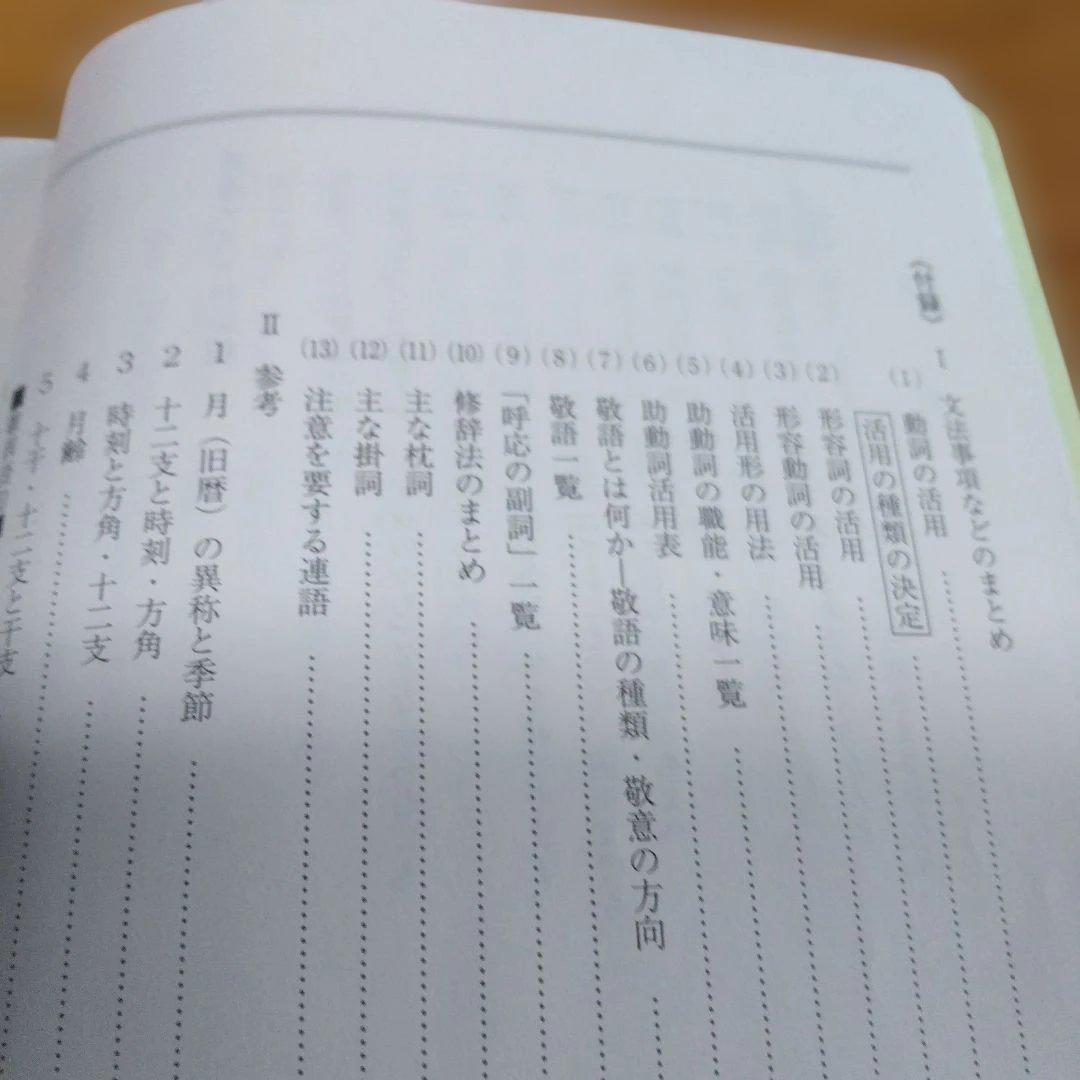 〈付録〉
Ⅰ 文法事項などのまとめ
(1) 動詞の活用
活用の種類の決定
(2) 形容詞の活用
(3) 形容動詞の活用
(4) 活用形の用法
(5) 助動詞の職能・意味一覧
(6) 助動詞活用表
(7) 敬語とは何か―敬語の種類・敬意の方向
(8) 敬語一覧
(9) 「呼応の副詞」一覧
(10) 修辞法のまとめ
(11) 主な枕詞
(12) 主な掛詞
(13) 注意を要する連語
Ⅱ 参考
1 月(旧暦)の異称と季節
2 十二支と時刻・方角
3 時刻と方角・十二支
4 月齢
5 十干・十二支と干支